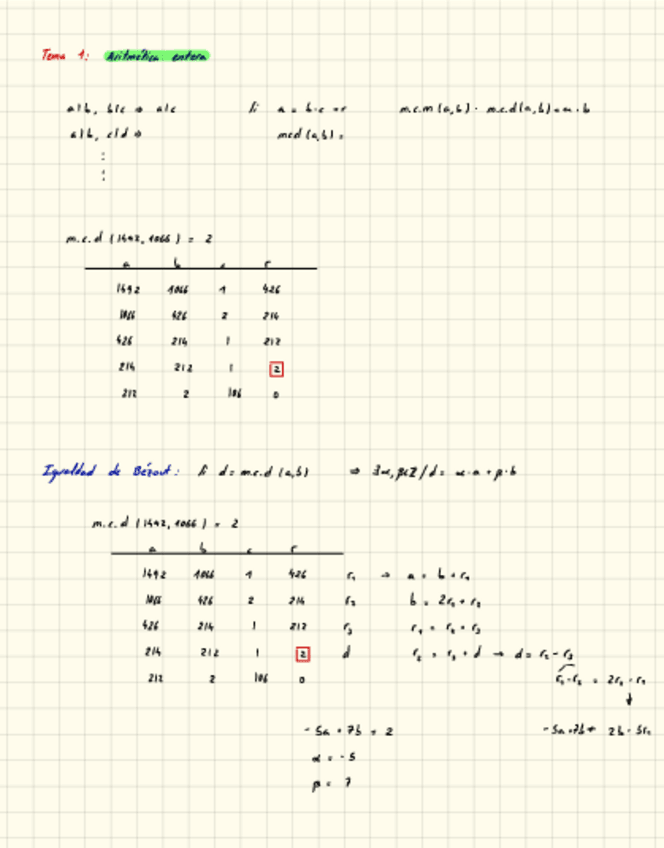 Tema 1: Aritmética entera
a|b, b|c ⇒ a|c Si a = b·c + r m.c.m(a,b) · m.c.d(a,b) = a·b
a|b, c|d ⇒ mcd(a,b) =
⋮
m.c.d (1492, 1066) = 2
a b c r
1492 1066 1 426
1066 426 2 214
426 214 1 212
214 212 1 2
212 2 106 0
Igualdad de Bézout: Si d = m.c.d (a,b) ⇒ ∃α,β∈Z / d = α·a + β·b
m.c.d (1492, 1066) = 2
a b c r
1492 1066 1 426 r₁ → a = b + r₁
1066 426 2 214 r₂ b = 2r₁ + r₂
426 214 1 212 r₃ r₁ = r₂ + r₃
214 212 1 2 d r₂ = r₃ + d → d = r₂ - r₃
212 2 106 0 r₁-r₂ = 2r₂ - r₁
↓
-5a + 7b = 2 -5a+7b 2b - 5r₁
α = -5
β = 7